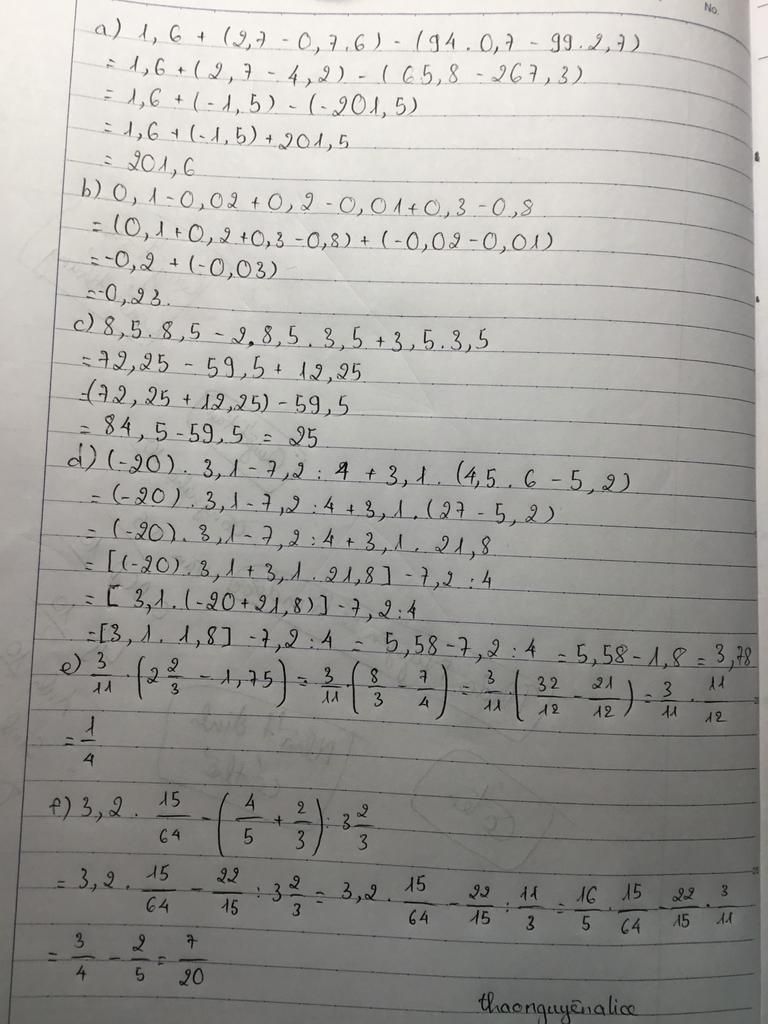 No.
a) 1,6 + (2,7 - 0,7.6) - (94.0,7 - 99.2,7)
= 1,6 + (2,7 - 4,2) - (65,8 - 267,3)
= 1,6 + (-1,5) - (-201,5)
= 1,6 + (-1,5) + 201,5
= 201,6
b) 0,1 - 0,02 + 0,2 - 0,01 + 0,3 - 0,8
= (0,1 + 0,2 + 0,3 - 0,8) + (-0,02 - 0,01)
= -0,2 + (-0,03)
= -0,23.
c) 8,5.8,5 - 2.8,5.3,5 + 3,5.3,5
= 72,25 - 59,5 + 12,25
= (72,25 + 12,25) - 59,5
= 84,5 - 59,5 = 25
d) (-20).3,1 - 7,2 : 4 + 3,1.(4,5.6 - 5,2)
= (-20).3,1 - 7,2 : 4 + 3,1.(27 - 5,2)
= (-20).3,1 - 7,2 : 4 + 3,1.21,8
= [(-20).3,1 + 3,1.21,8] - 7,2 : 4
= [3,1.(-20 + 21,8)] - 7,2 : 4
= [3,1.1,8] - 7,2 : 4 = 5,58 - 7,2 : 4 = 5,58 - 1,8 = 3,78
e) 3/11 . (2 2/3 - 1,75) = 3/11 . (8/3 - 7/4) = 3/11 . (32/12 - 21/12) = 3/11 . 11/12
= 1/4
f) 3,2 . 15/64 - (4/5 + 2/3) : 3 2/3
= 3,2 . 15/64 - 22/15 : 3 2/3 = 3,2 . 15/64 - 22/15 : 11/3 = 16/5 . 15/64 - 22/15 . 3/11
= 3/4 - 2/5 = 7/20
thaonguyênalice